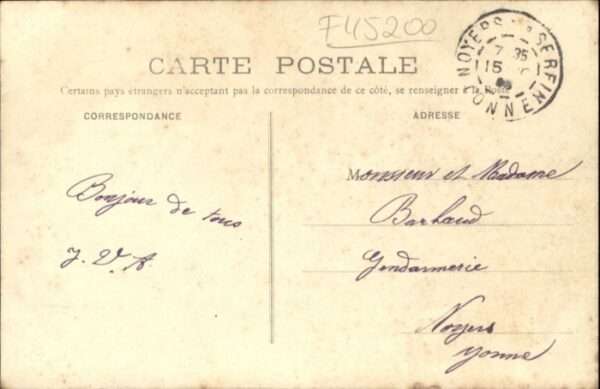 F45200
NOYERS S SEREIN
7 35
15
YONNE
CARTE POSTALE
Certains pays étrangers n'acceptant pas la correspondance de ce côté, se renseigner à la Poste
CORRESPONDANCE
ADRESSE
Bonjour de tous
J. V. A.
Monsieur et Madame
Barbaud
Gendarmerie
Noyers
Yonne